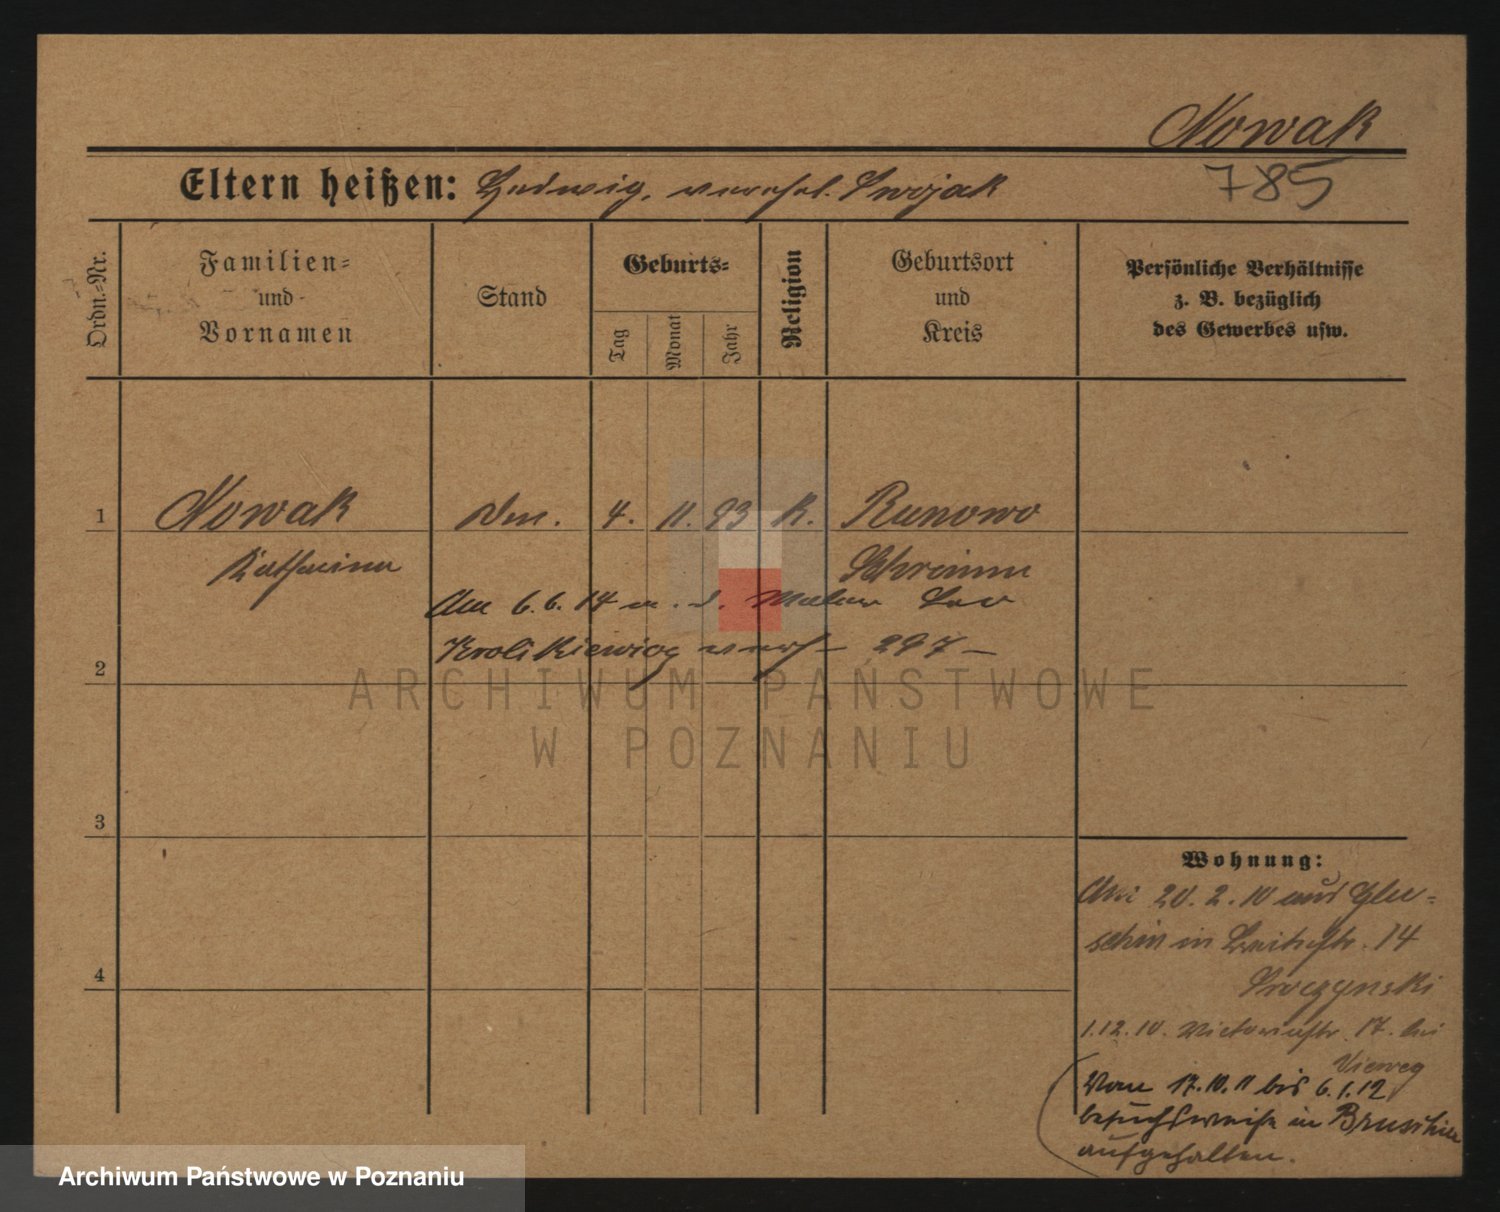 Nowak
785
Eltern heißen: Hedwig, verehel. Swojak
Ordn.-Nr.
Familien-
und
Vornamen
Stand
Geburts-
Tag
Monat
Jahr
Religion
Geburtsort
und
Kreis
Persönliche Verhältnisse
z. B. bezüglich
des Gewerbes usw.
1 Nowak 4. 11. 93 K. Runowo
Katharina Schrimm
Am 6.6.14 m. d. Maler Leo
Krolikiewicz verh 297
2
3
4
Wohnung:
Am 20.2.10 aus Glu-
schin in 14
Swoczynski
1.12.10. Victoriastr. 17. bei
Vieweg
Vom 17.10.11 bis 6.1.12
besuchsweise in
aufgehalten.
ARCHIWUM PAŃSTWOWE
W POZNANIU
Archiwum Państwowe w Poznaniu